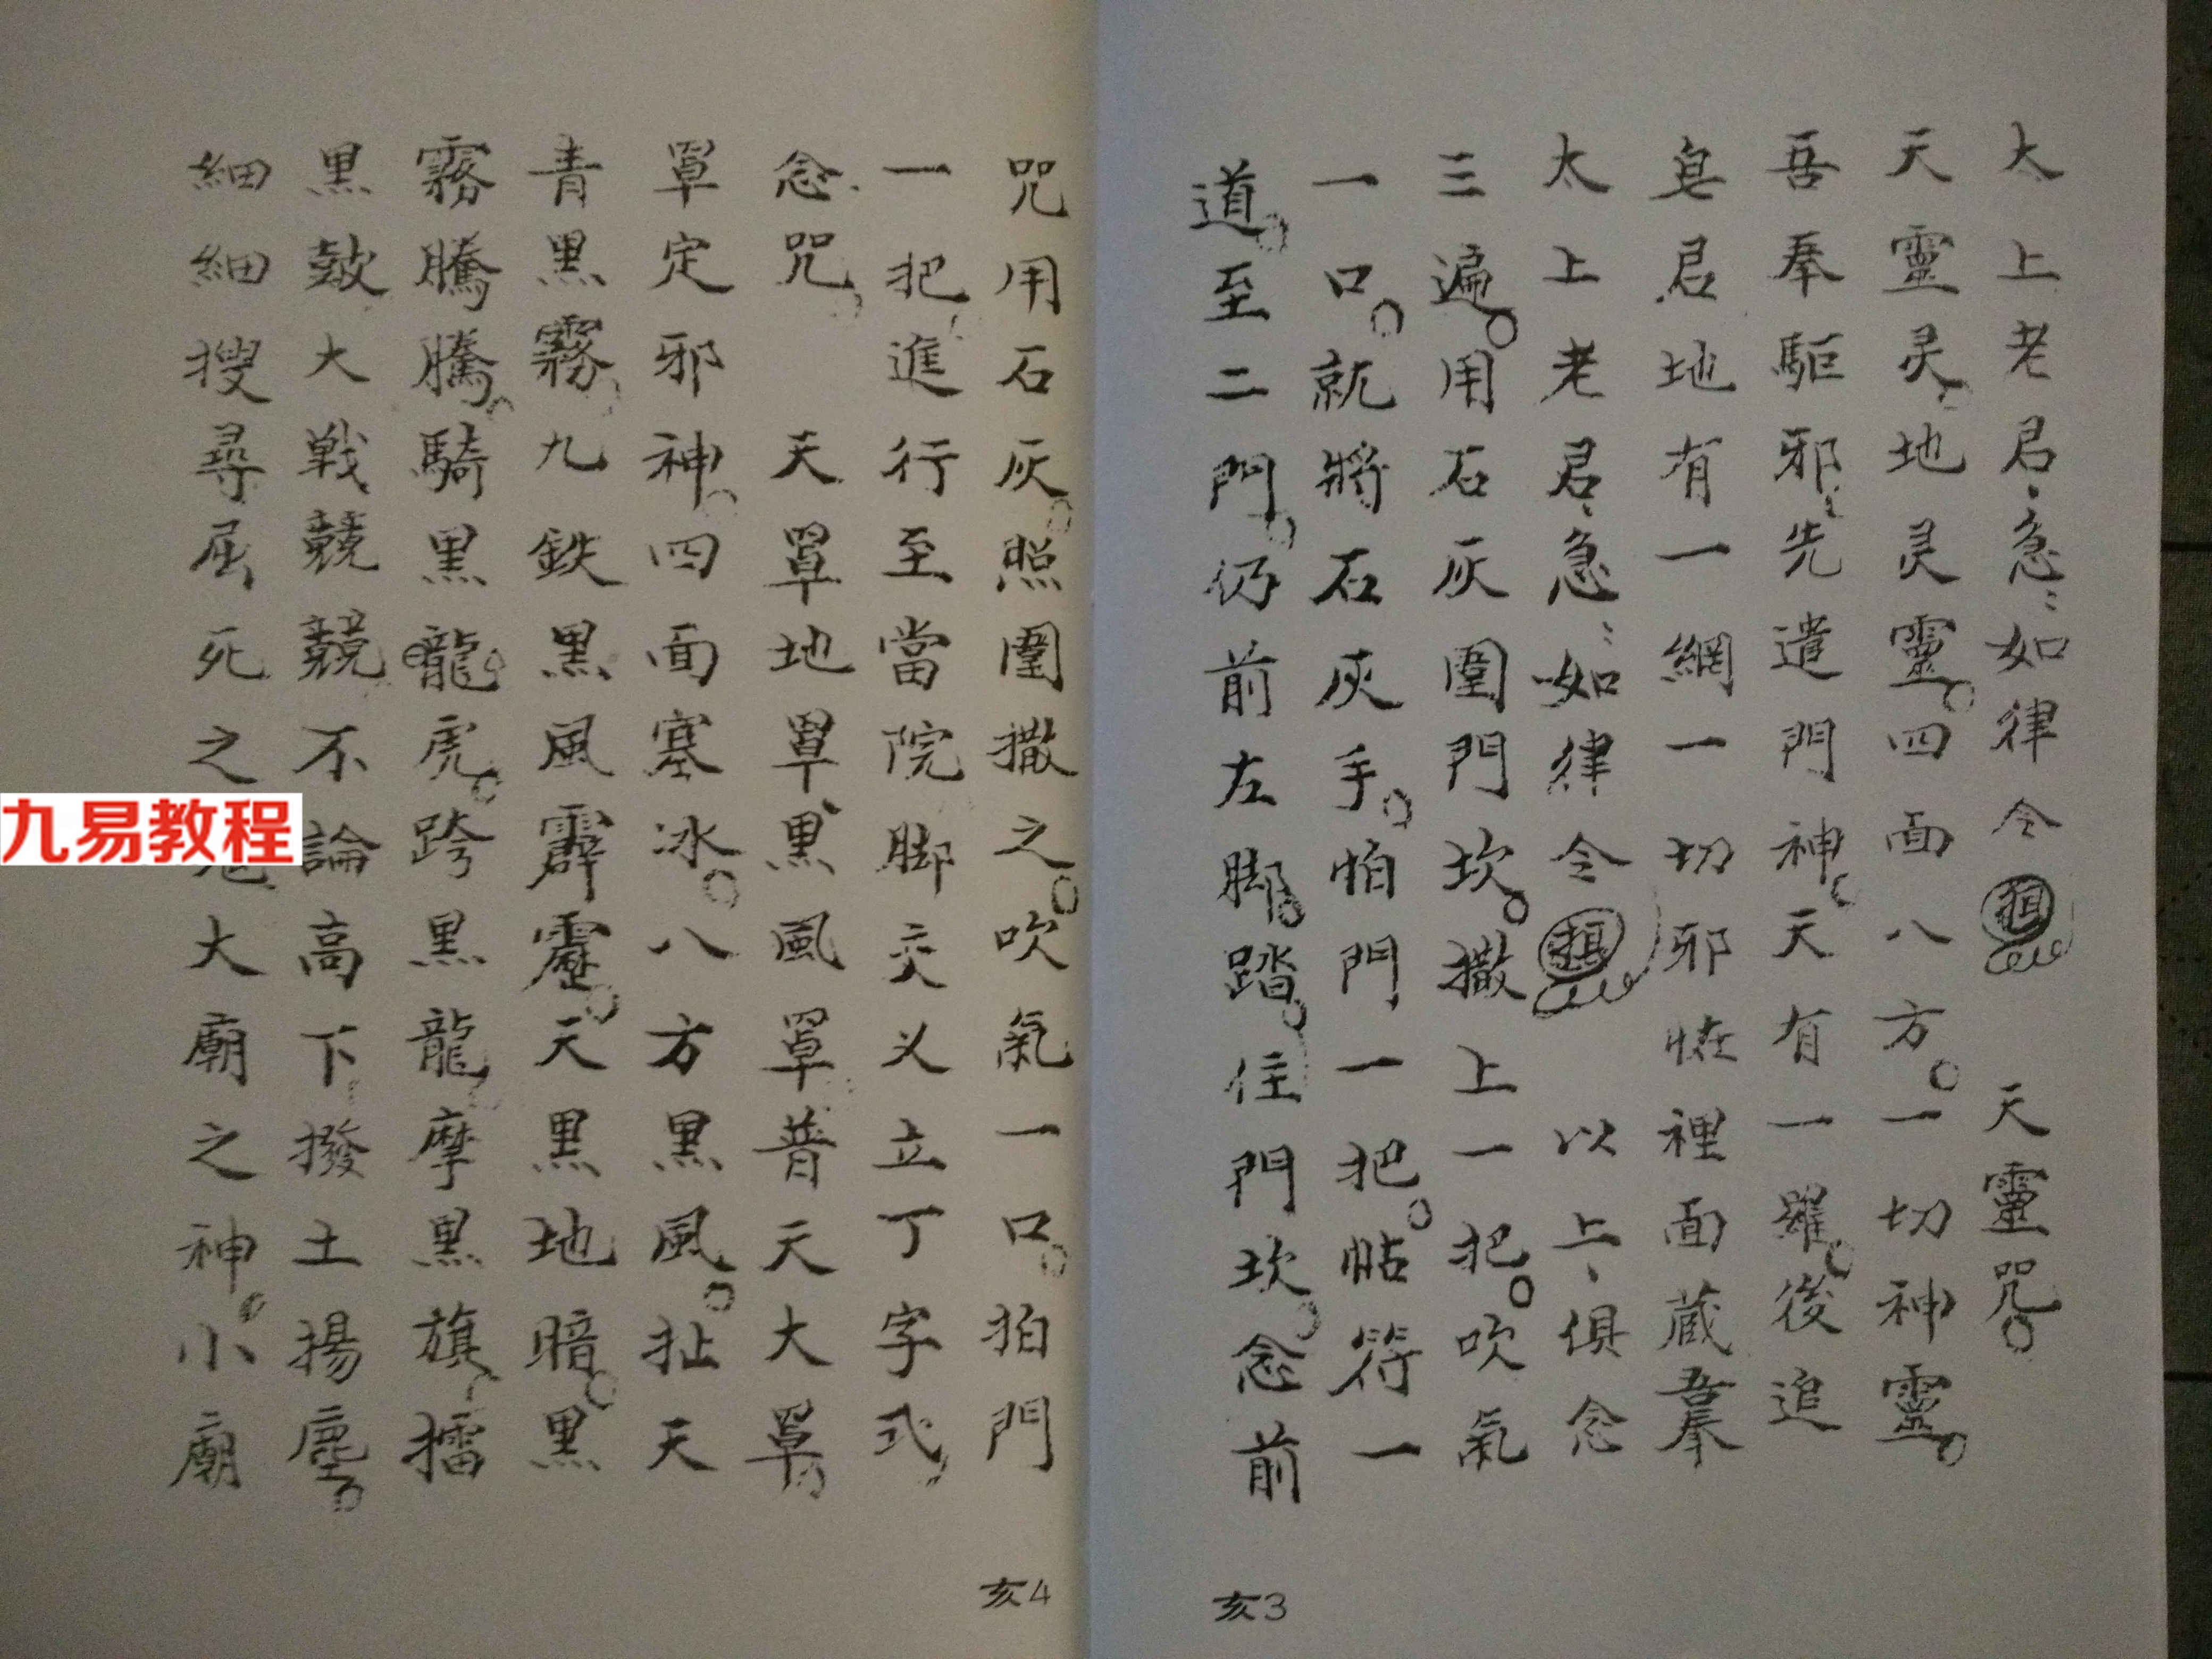 太上老君急〻如律令 天靈咒。
天靈灵。地灵靈。四面八方。一切神靈。
吾奉驅邪。先遣門神。天有一羅。後追
皂君地有一網一切邪怪裡面藏羣
太上老君急〻如律令 以上俱念
三遍。用石灰圍門坎。撒上一把。吹氣
一口。就將石灰手。怕門一把。帖符一
道。至二門。仍前左脚踏住門坎。念前
亥3
咒用石灰。照圍撒之。吹氣一口。拍門
一把進行至當院脚交义立丁字式
念咒 天罩地罩黑風罩普天大罩
罩定邪神。四面塞冰。八方黑風。扯天
青黑霧九鉄黑風霹靂。天黑地暗。黑
霧騰騰。騎黑龍虎。跨黑龍摩黑旗擂
黑皷大戰競競不論高下撥土揚塵。
細細搜尋屈死之 大廟之神。小廟
亥4
九易教程